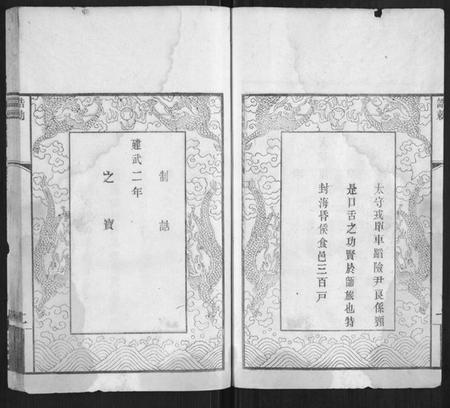 太守戎單車蹈險尹良係頸
是口舌之功賢於師旅也特
封海昏侯食邑三百戸
制誥
建武二年
之寶
誥勅
二